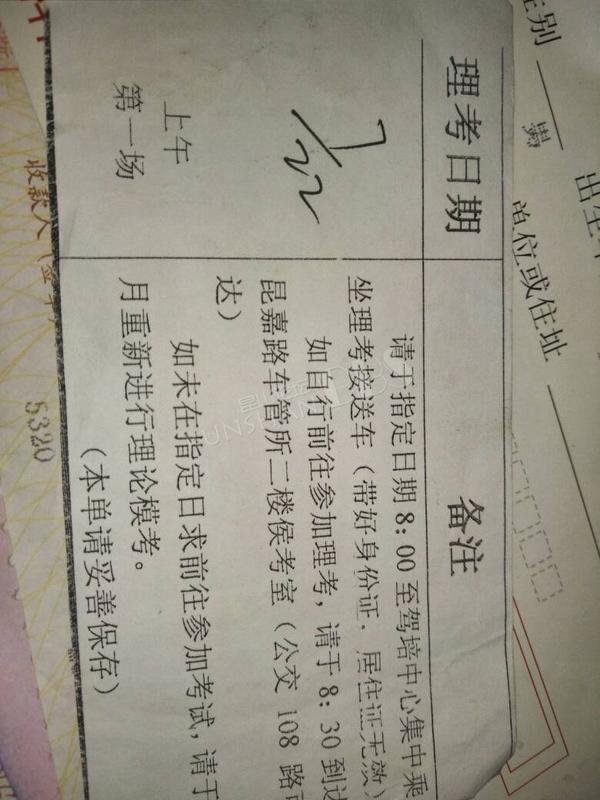 理考日期
备注
7/22
上午
第一场
请于指定日期8:00至驾培中心集中乘
坐理考接送车（带好身份证，居住证无效）
如自行前往参加理考，请于8:30到达
昆嘉路车管所二楼侯考室（公交108路
达）
如未在指定日求前往参加考试，请于
月重新进行理论模考。
（本单请妥善保存）
性别
男
出生
单位或住址
收款人
5320